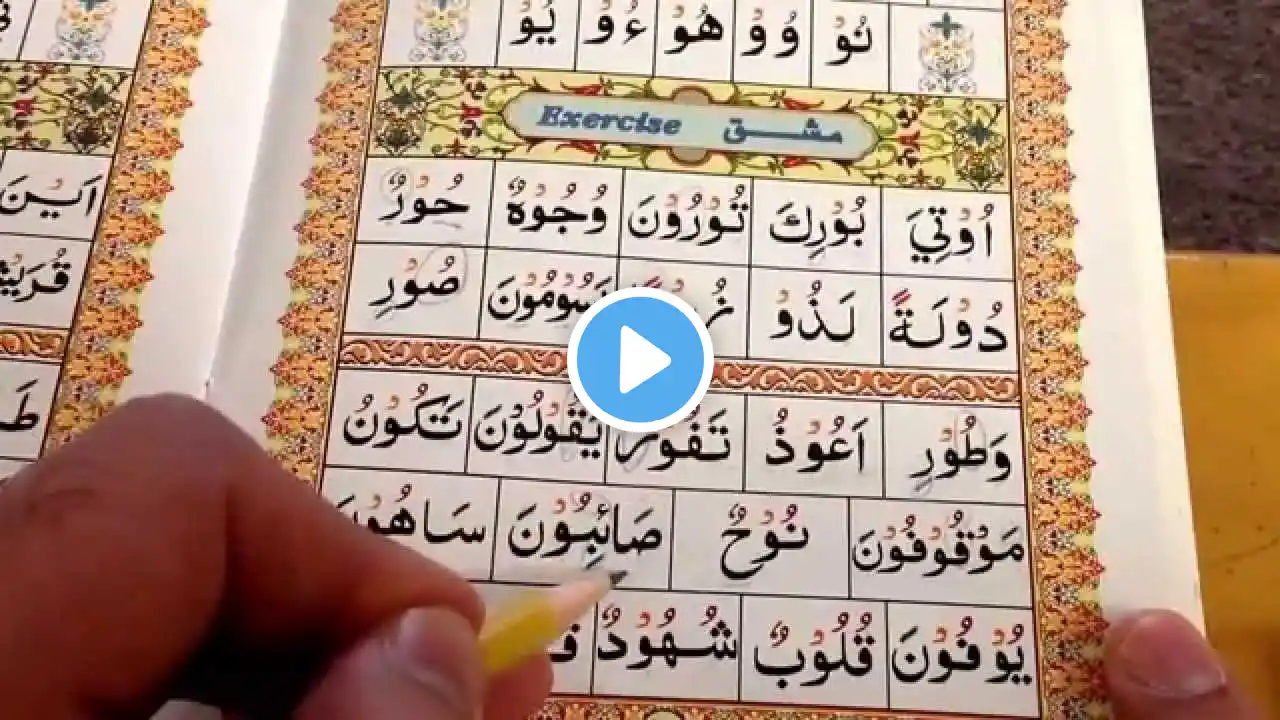 نُوْ وُوْ هُوْ ءُوْ يُوْ
مشق Exercise
اُوْتِيَ بُوْرِكَ تُوْرُوْنَ وُجُوْهٌ حُوْرٌ
دُوْلَةً لَذُوْ يَسُوْمُوْنَ صُوْرِ
وَطُوْرِ اَعُوْذُ تَفُوْرُ يَقُوْلُوْنَ تَكُوْنُ
مَوْقُوْفُوْنَ نُوْحٌ صَائِبُوْنَ سَاهُوْنَ
يُوْفُوْنَ قُلُوْبٌ شُهُوْدٌ
اَيْنَ